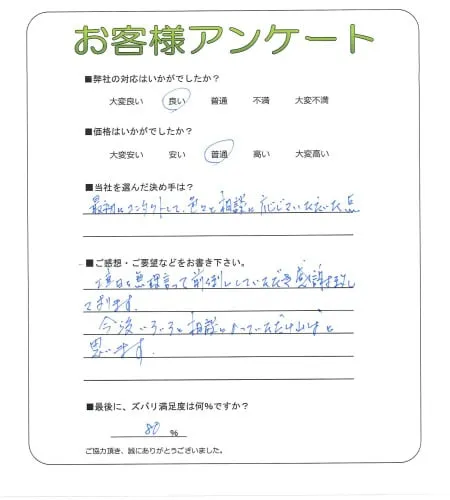 お客様アンケート
■弊社の対応はいかがでしたか？
大変良い 良い 普通 不満 大変不満
■価格はいかがでしたか？
大変安い 安い 普通 高い 大変高い
■当社を選んだ決め手は？
最初にコンタクトして、色々と相談に応じていただいた点
■ご感想・ご要望などをお書き下さい。
無理言って前倒ししていただき感謝致し
ております。
今後いろいろ相談にのっていただければと
思います。
■最後に、ズバリ満足度は何％ですか？
80 %
ご協力頂き、誠にありがとうございました。